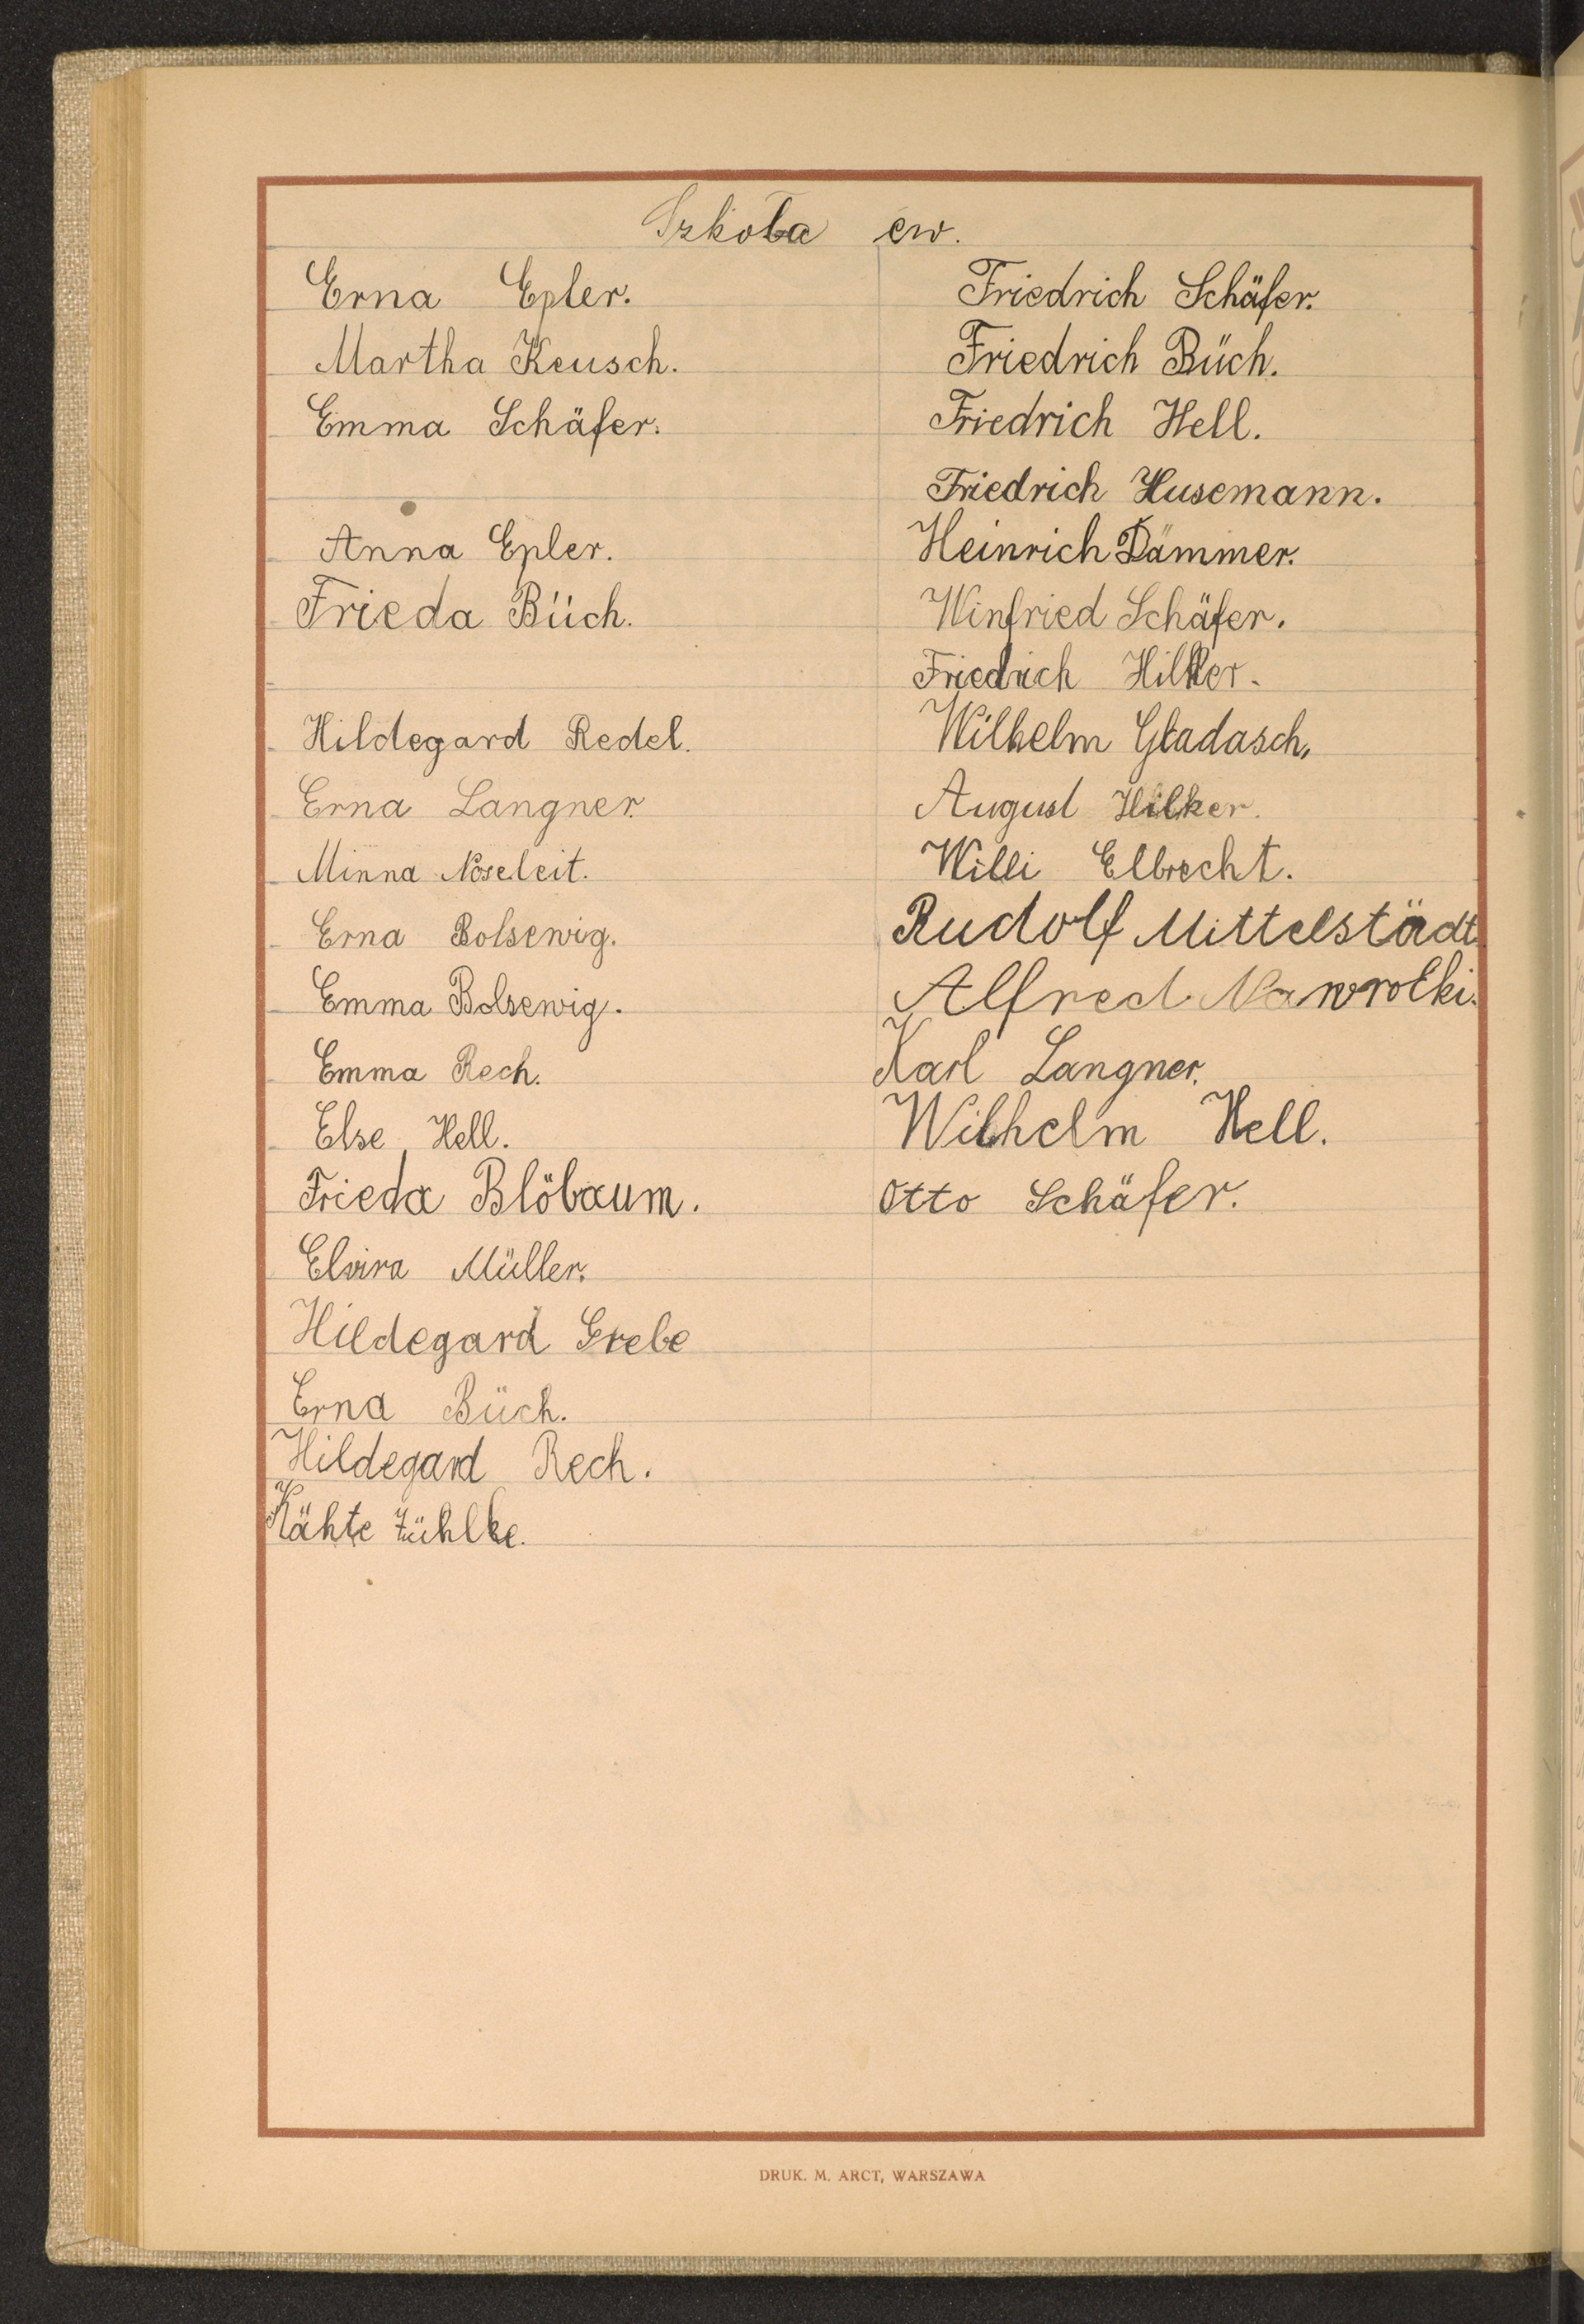 Szkoła ew.
Erna Epler.
Martha Keusch.
Emma Schäfer.
Anna Epler.
Frieda Büch.
Hildegard Redel.
Erna Langner.
Minna Noseleit.
Erna Bolsewig.
Emma Bolsewig.
Emma Rech.
Else Hell.
Frieda Blöbaum.
Elvira Müller.
Hildegard Grebe
Erna Büch.
Hildegard Rech.
Kähte Zühlke.
Friedrich Schäfer.
Friedrich Büch.
Friedrich Hell.
Friedrich Husemann.
Heinrich Dämmer.
Winfried Schäfer.
Friedrich Hilker.
Wilhelm Gladasch.
August Hilker.
Willi Elbrecht.
Rudolf Mittelstädt.
Alfred Nawrotki.
Karl Langner.
Wilhelm Hell.
Otto Schäfer.
DRUK. M. ARCT, WARSZAWA